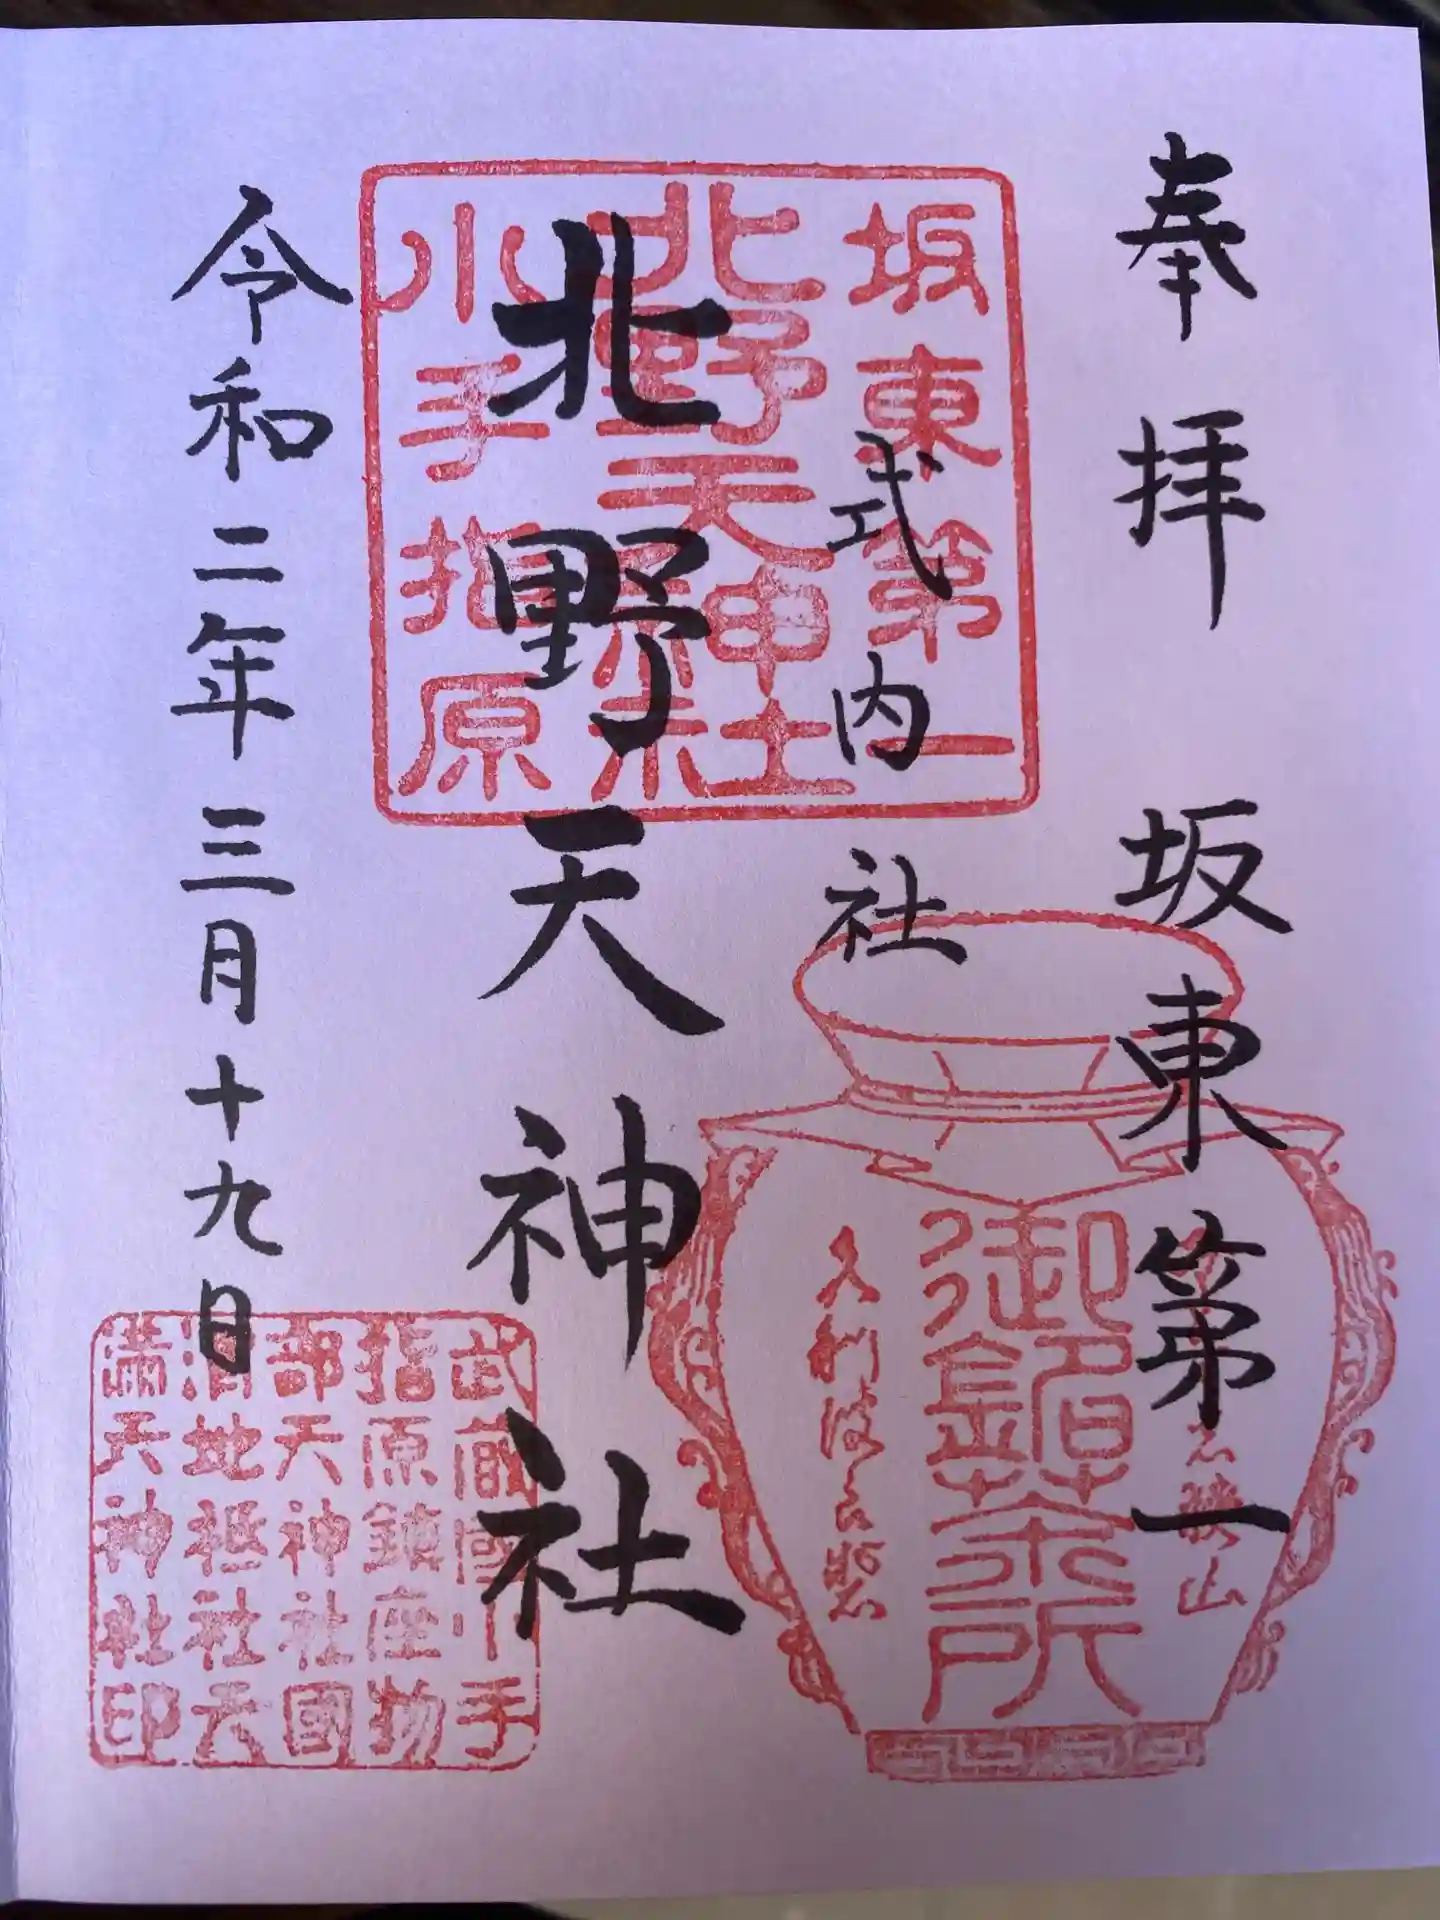 奉拝 坂東第一
式内社
北野天神社
令和二年三月十九日
坂東第一
北野天神社
小手指原
武蔵國小手
指原鎮座物
部天神社國
渭地祇社天
満天神社印